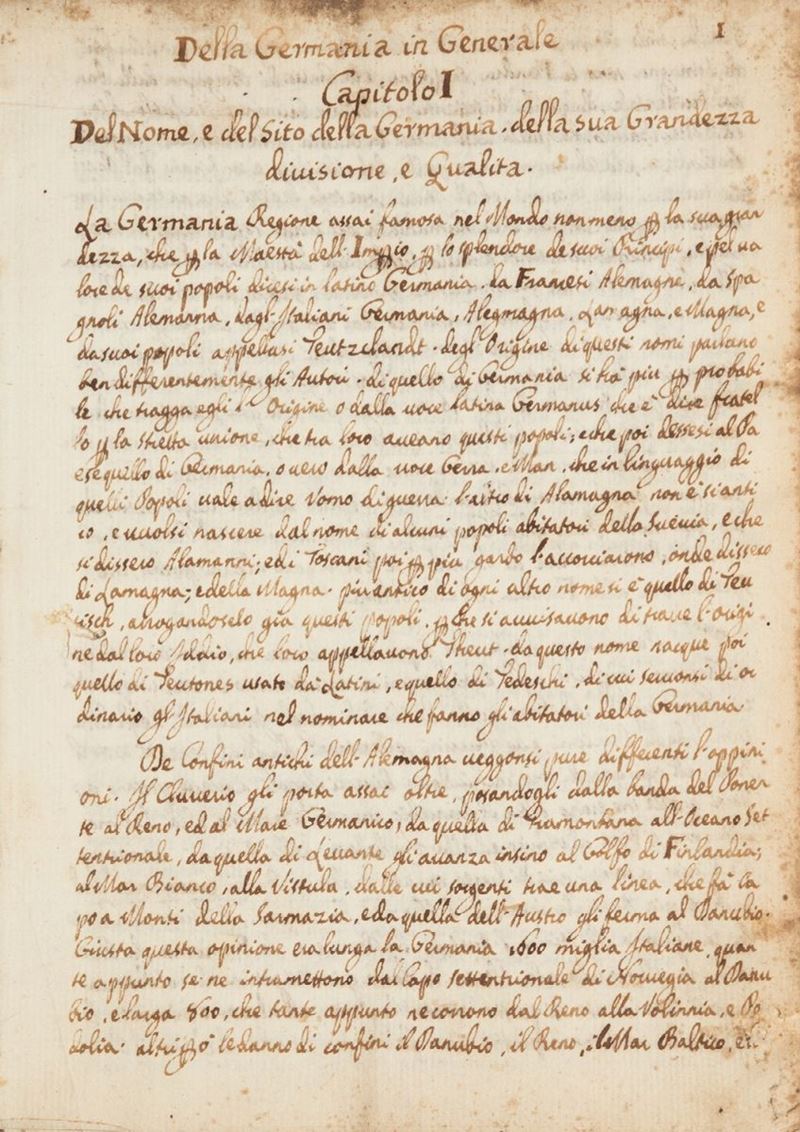 1
Della Germania in Generale
Capitolo I
Del Nome, e del Sito della Germania. della sua Grandezza
divisione, e Qualita.
La Germania Regione assai famosa nel Mondo non meno ꝑ la sua gran
dezza, che ꝑ la Maestà dell'Imꝑio, ꝑ lo splendore de suoi Principi, e pel ua
lore de suoi popoli dicesi in latino Germania. da Francesi Alemagne, da Spa
gnoli Alemanna, dagl'Italiani Germania, Alegmagna, Lamagna, e Magna, e
da suoi popoli appellasi Teutzclandt. degl'Origine di questi nomi parlano
ben differentemente gli Autori. di quello di Germania si ha piu ꝑ probabi
le che tragga egli l'Origine o dalla uoce latina Germanus, che è dire fratel
lo ꝑ la stretta unione, che tra loro aueano questi popoli; e che poi dessesi al Pa
ese quello di Germania, o uero dalla uoce Gerra, e Man, che in linguaggio di
quelli Popoli uale a dire Vomo di guerra. l'altro di Alamagna non è si anti
co, e uuolsi nascere dal nome di alcuni popoli abitatori della Sueuia, e che
si dissero Alamanni; ed i Toscani poi ꝑ piu garbo l'accorciarono, onde dissero
di Lamagna; e della Magna. piu antico di ogni altro nome si è quello di Teu
tisch, arrogandoselo gia questi popoli, ꝑche si auuisauono di trarre l'origi
ne dal loro Iddio, che loro appellauono Theut. da questo nome nacque poi
quello di Teutones usato da Latini, e quello di Tedeschi, di cui seruonsi di or
dinario gl'Italiani nel nominare che fanno gli abitatori della Germania
De Confini antichi dell'Alemagna ueggonsi pure differenti l'oppini
oni. Il Cluverio gli porta assai oltre, posandogli dalla banda del Ponen
te al Reno, ed al Mare Germanico; da quella di Tramontana all'Oceano Set
tentrionale, da quella di Leuante gli auanza insino al Golfo di Finlandia;
al Mar Bianco, alla Vistula, dalle cui sorgenti trae una linea, che fà ca
po a Monti della Sarmazia, e da quella dell'Austro gli ferma al Danubio.
Giusta questa opinione era lunga la Germania 1600 miglia Italiane, quan
te appunto se ne intramettono dal Capo settentrionale di Noruegia al Danu
bio, e larga 800, che tante appunto ne corrono dal Reno alla Volinnia, e Po
dolia. altri ꝑò le danno di confini il Danubio, il Reno, il Mar Baltico,